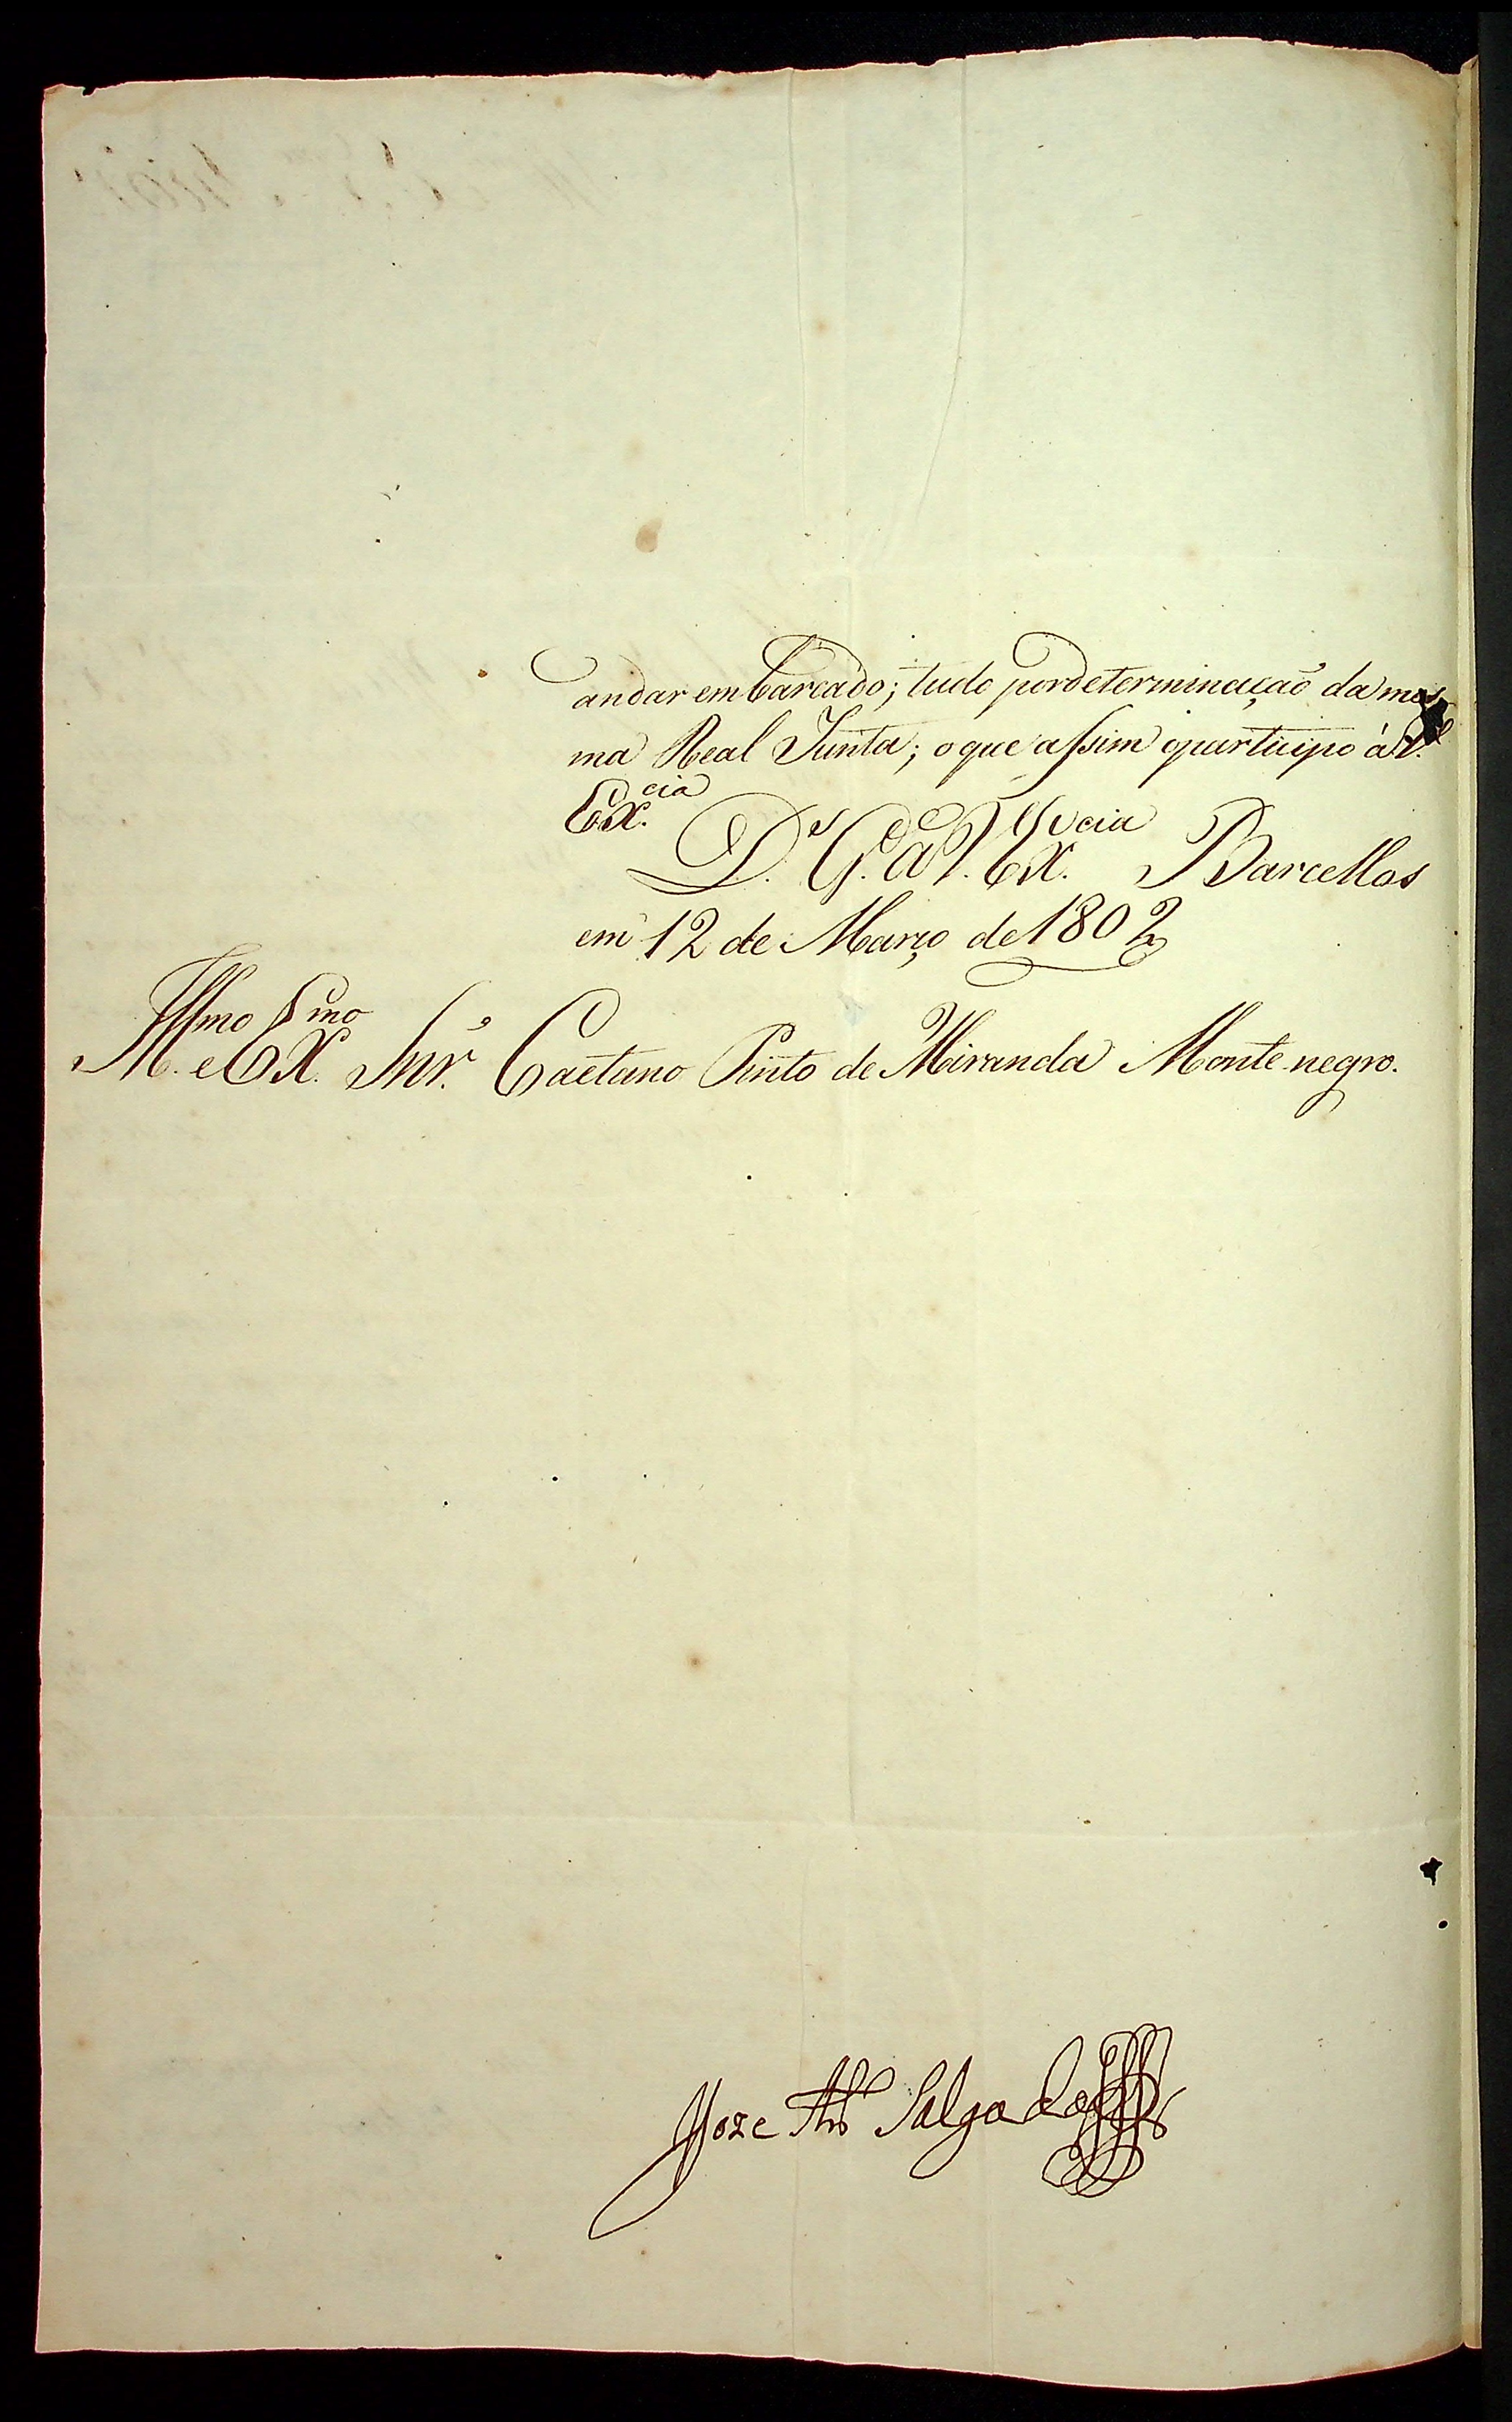 andar embarcado; tudo por determinação da mes
ma Real Junta; o que assim o participo á V.
Ex.cia
D.s G.de a V. Ex.cia Barcellos
em 12 de Março de 1802
Ill.mo e Ex.mo Snr. Caetano Pinto de Miranda Monte negro.
Joze An.to Salgado